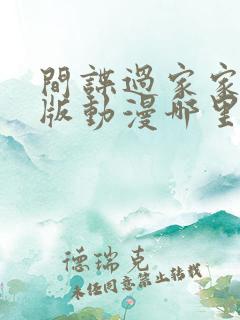 間諜過家家
版動漫哪里
德瑞克
未经同意禁止转载